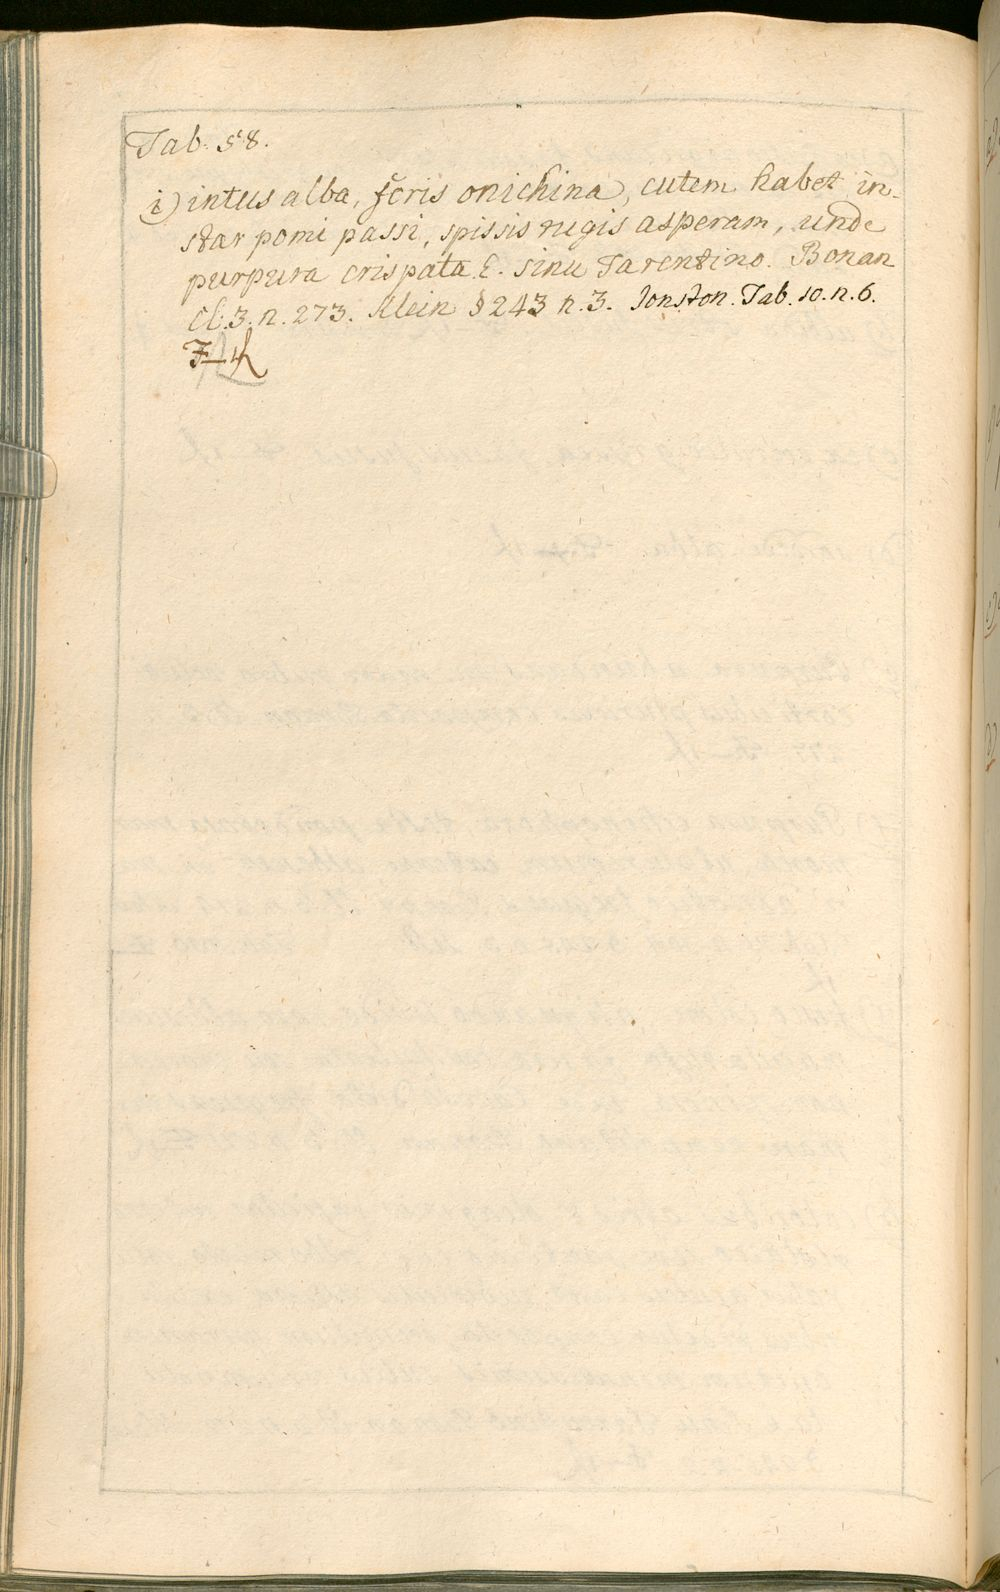 Tab. 58.
i) intus alba, foris onichina, cutem habet in-
star pomi passi, spissis rugis asperam, unde
purpura crispata. E. sinu Tarentino. Bonan
Cl. 3. n. 273. Klein § 243 n. 3. Jonston. Tab. 10. n. 6.